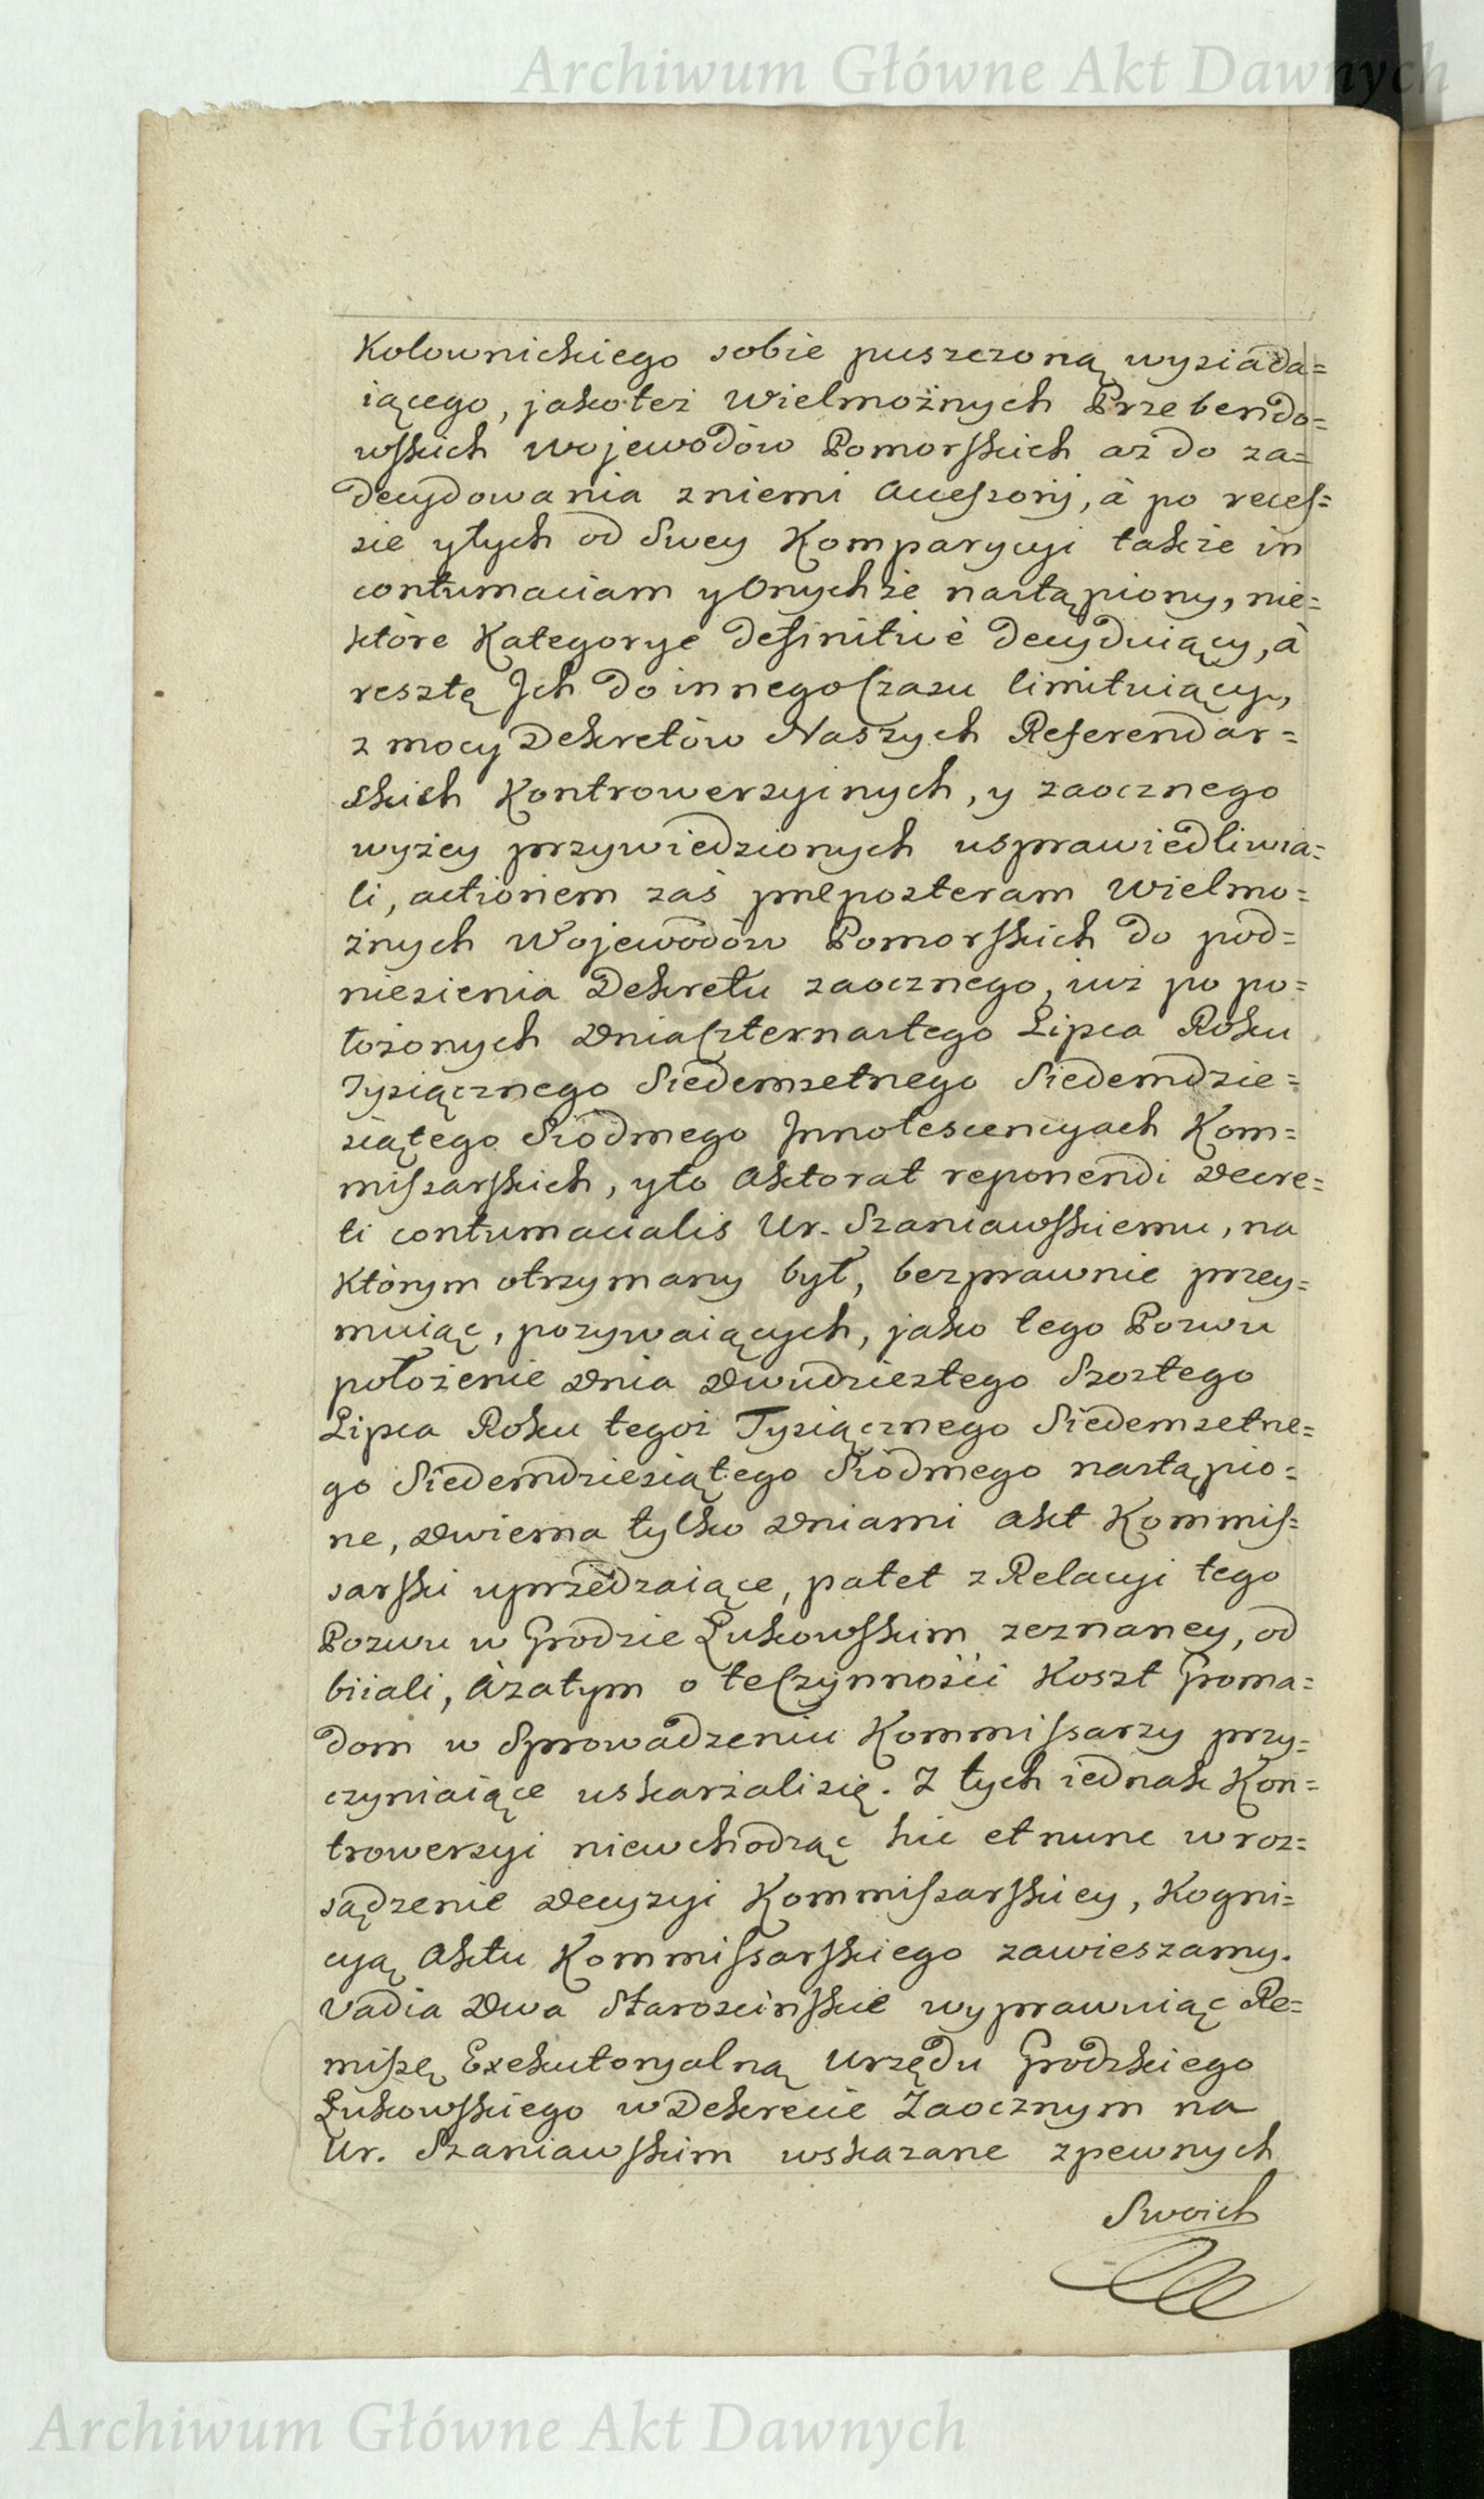 Archiwum Główne Akt Dawnych
Kolownickiego sobie puszczoną wysiada=
iącego, jakoteż Wielmożnych Przebendo=
wskich Wojewodów Pomorskich aż do za=
decydowania zniemi Accessorij, à po reces=
sie ytych od Swey Komparycyi także in
contumaciam y Onychże nastąpiony, nie=
które Kategorye definitivè decyduiący, à
resztę Jch do innego Czasu limituiący,
z mocy Dekretów Naszych Referendar=
skich Kontrowersyinych, y zaocznego
wyżey przywiedzionych usprawiedliwia=
li, actionem zaś prepósteram Wielmo=
żnych Wojewodów Pomorskich do pod=
niesienia Dekretu zaocznego, iuż po po=
łożonych Dnia Czternastego Lipca Roku
Tysiącznego Siedemsetnego Siedemdzie=
siątego Siódmego Jnnotescencyach Kom=
missarskich, yto Aktorat reponendi Decre=
ti contumacialis Ur. Szaniawskiemu, na
którym otrzymany był, bezprawnie przey=
muiąc, pozywaiących, jako tego Pozwu
położenie Dnia Dwudziestego Szostego
Lipca Roku tegoż Tysiącznego Siedemsetne=
go Siedemdziesiątego Siódmego nastąpio=
ne, Dwiema tylko Dniami Akt Kommis=
sarski uprzedzaiące, patet z Relacyi tego
Pozwu w Grodzie Łukowskim zeznaney, od
biiali, àzatym o te Czynności Koszt Groma=
dom w Sprowadzeniu Kommissarzy przy=
czyniaiące uskarżali się. Z tych iednak Kon=
trowersyi niewchodząc hic et nunc w roz=
sądzenie Decyzyi Kommissarskiey, Kogni=
cyą Aktu Kommissarskiego zawieszamy.
Vadia Dwa Starościńskie wyprawuiąc Re=
missę Exekutoryalną Urzędu Grodzkiego
Łukowskiego w Dekrecie Zaocznym na
Ur. Szaniawskim wskazane zpewnych
Swoich
Archiwum Główne Akt Dawnych